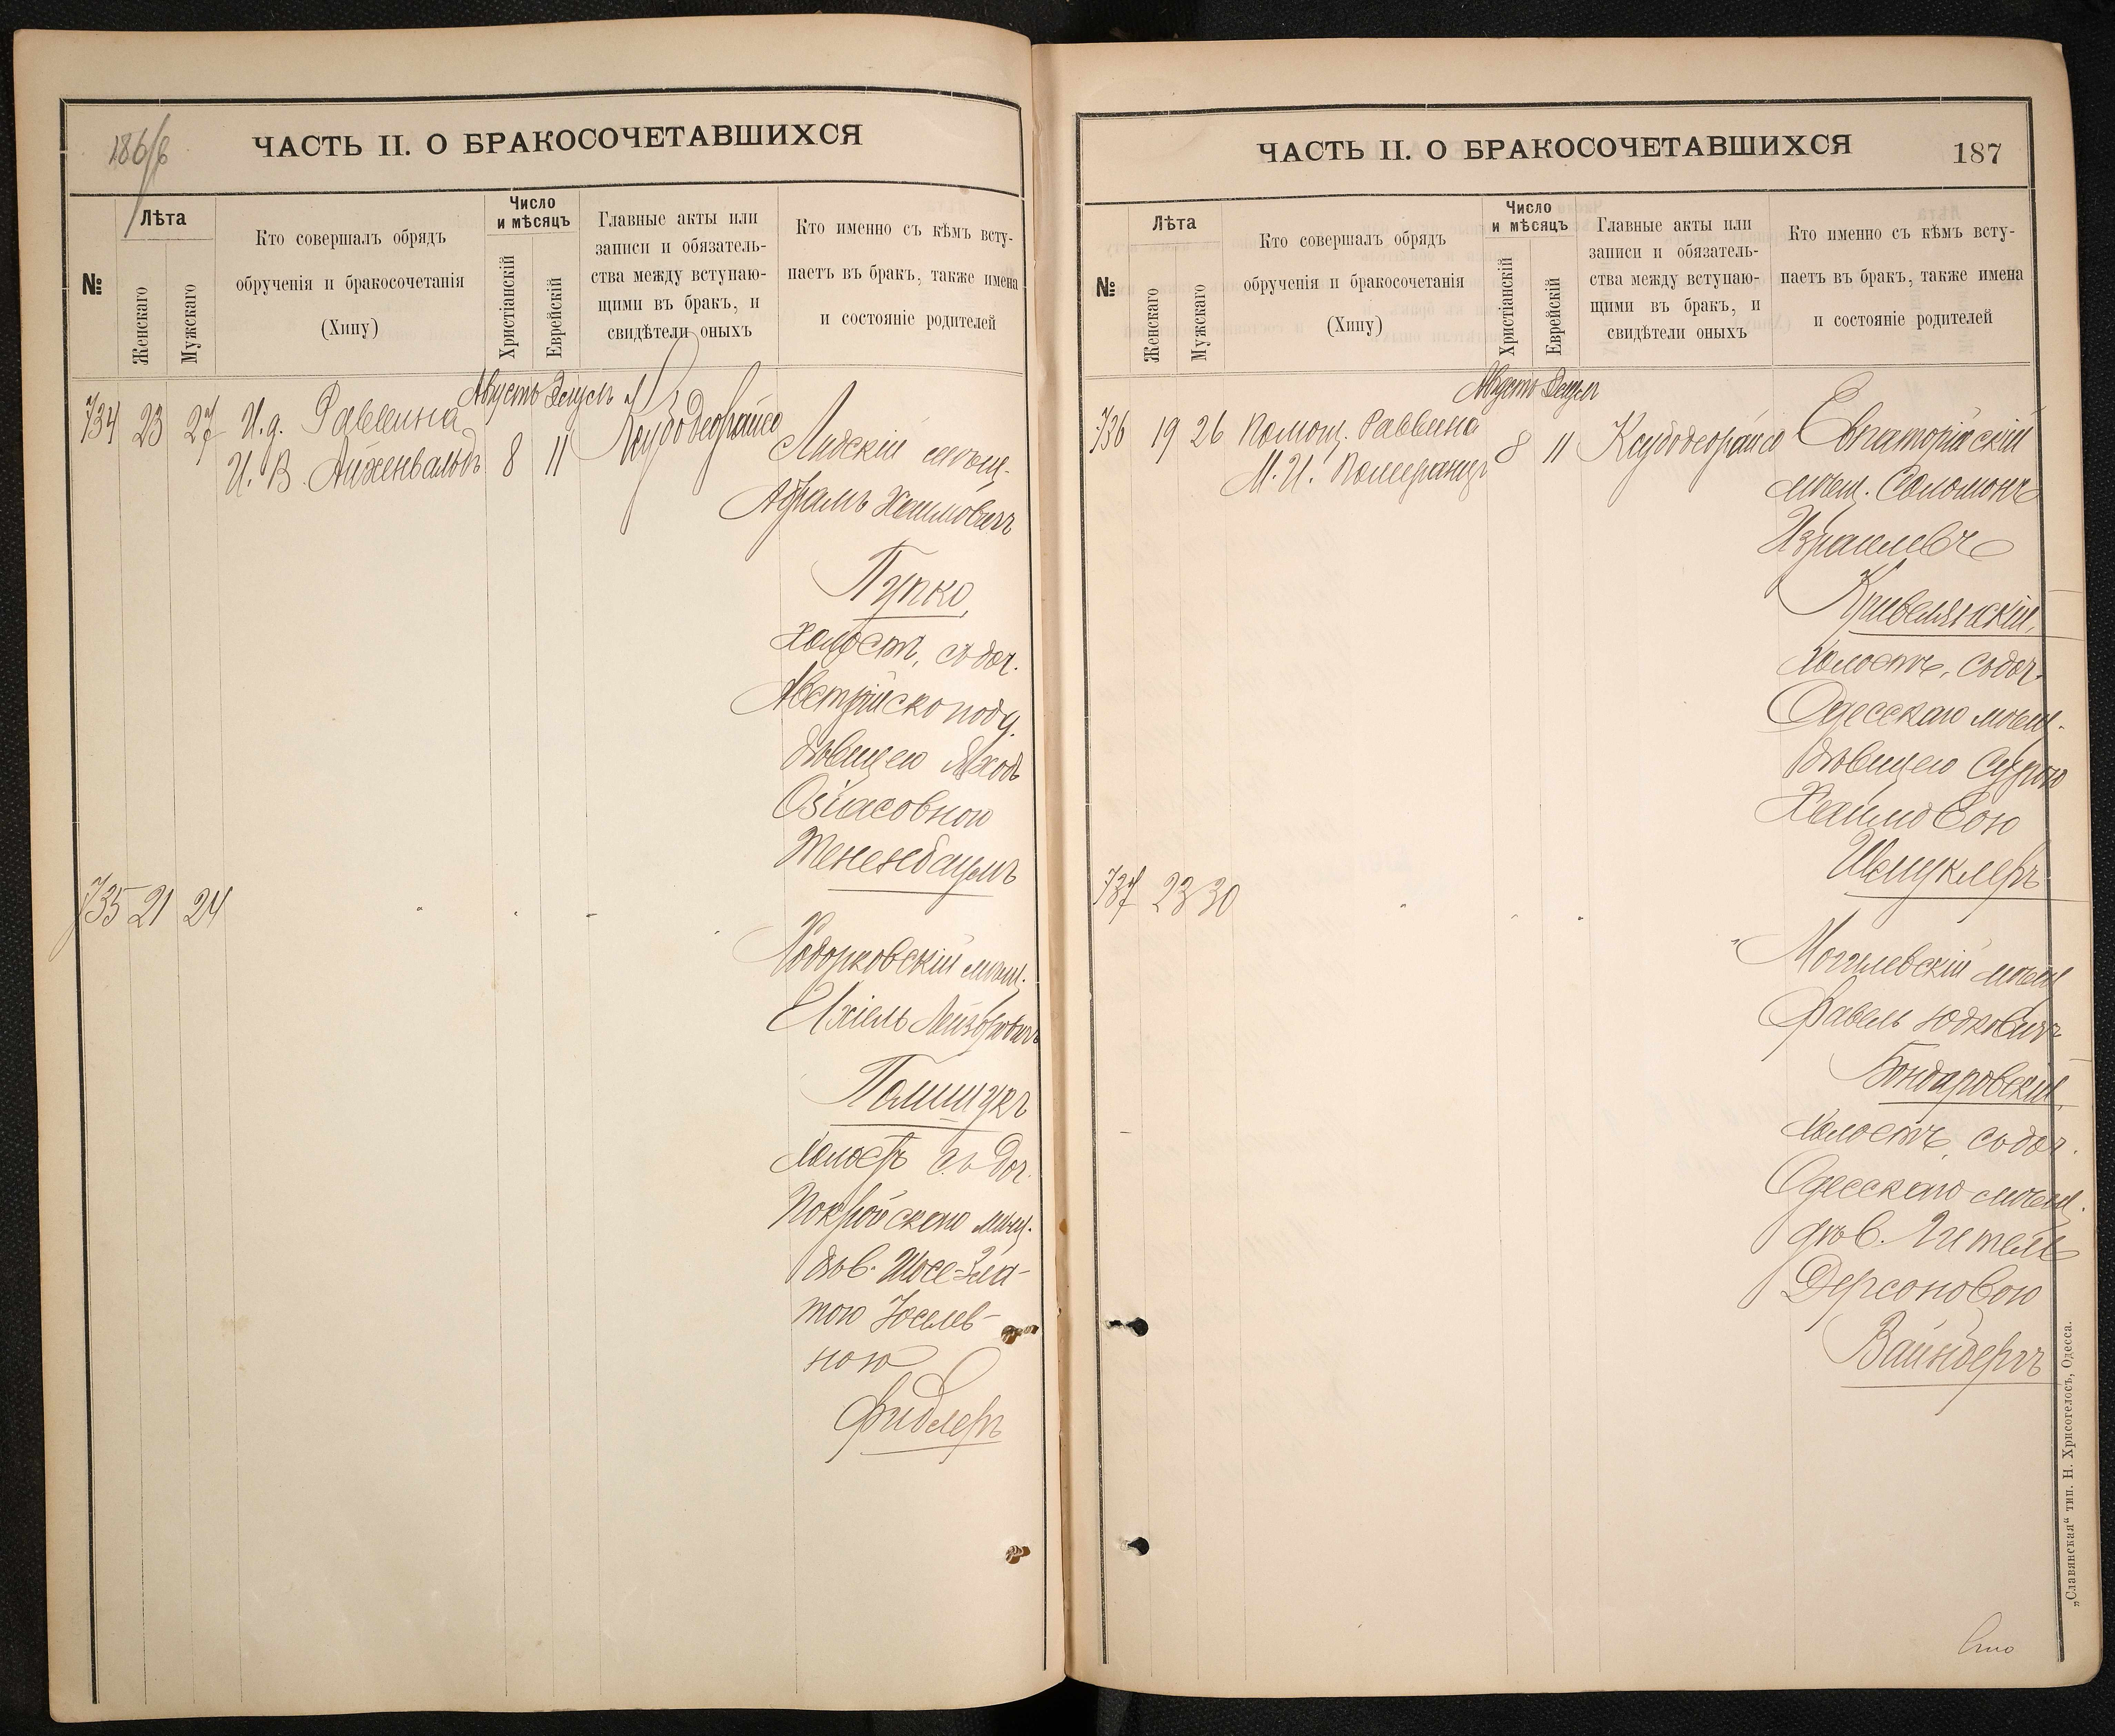 186/б
ЧАСТЬ II. О БРАКОСОЧЕТАВШИХСЯ
№
Лѣта
Женскаго
Мужскаго
Кто совершалъ обрядъ
обрученія и бракосочетанія
(Хипу)
Число
и мѣсяцъ
Христіанскій
Еврейскій
Главные акты или
записи и обязатель-
ства между вступаю-
щими въ бракъ, и
свидѣтели оныхъ
Кто именно съ кѣмъ всту-
паетъ въ бракъ, также имена
и состояніе родителей
Августъ Элулъ
734 23 27 И.д. Раввина
И. В. Айхенвальдъ 8 11
Лидскій мѣщ.
Абрамъ Хаимовичъ
Пупко,
холостъ, съ доч.
Австрійско под.
дѣвицею
Озіасовною
Тененбаумъ
735 21 24
Ходорковскій мѣщ.
Ихіель Лейзеровичъ
Полищукъ
холостъ съ доч.
Покройскаго мѣщ.
дѣв. Шосе-Зла-
тою Іоселев-
ною
Фидлеръ
ЧАСТЬ II. О БРАКОСОЧЕТАВШИХСЯ
187
№
Лѣта
Женскаго
Мужскаго
Кто совершалъ обрядъ
обрученія и бракосочетанія
(Хипу)
Число
и мѣсяцъ
Христіанскій
Еврейскій
Главные акты или
записи и обязатель-
ства между вступаю-
щими въ бракъ, и
свидѣтели оныхъ
Кто именно съ кѣмъ всту-
паетъ въ бракъ, также имена
и состояніе родителей
Августъ Элулъ
736 19 26 Помощ. Раввина
М. И. Померанцъ 8 11
Евпаторійскій
мѣщ. Соломонъ
Израилевъ
Кривелянскій,
холостъ, съ доч.
Одесскаго мѣщ.
дѣвицею Сурою
Хаимовою
Шмуклеръ
737 23 30
Могилевскій мѣщ
Фавель Юдковичъ
Бондаровскій,
холостъ, съ доч.
Одесскаго мѣщ.
дѣв. Гитель
Герсоновою
Вайнбергъ
„Славянская“ тип. Н. Хрисогелосъ, Одесса.